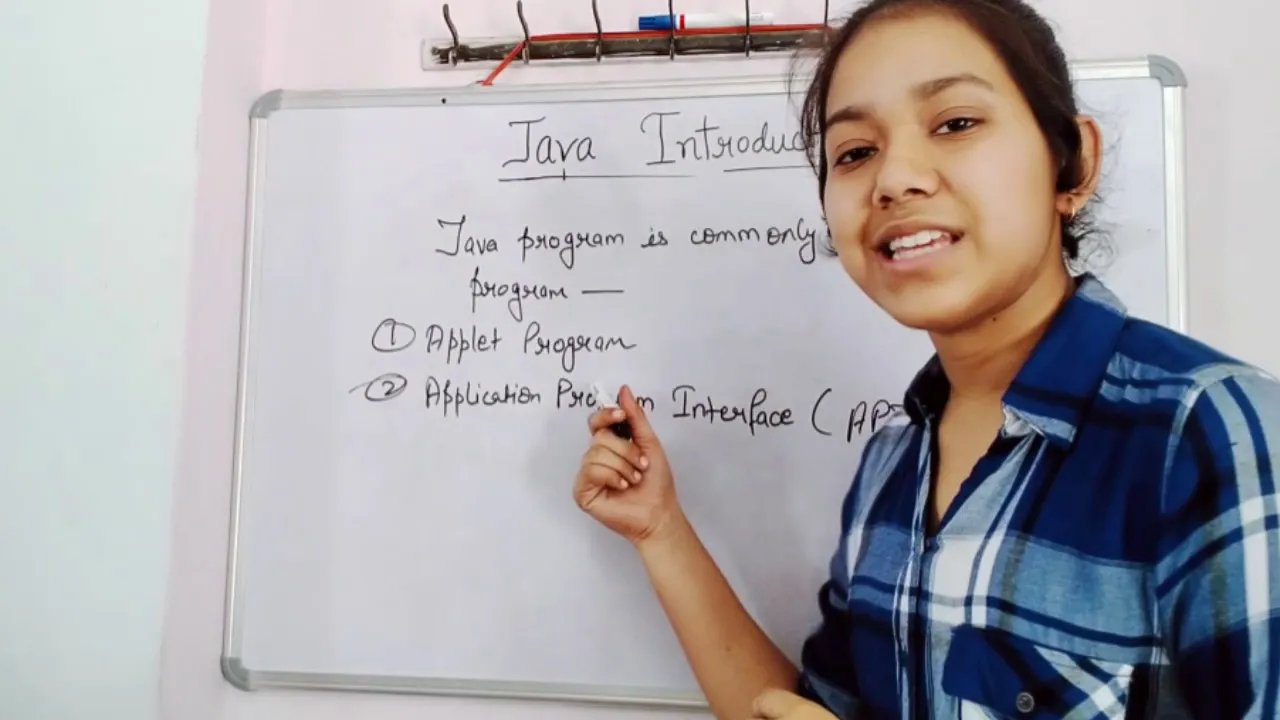 Java Introduc
Java program is commonly
program —
① Applet Program
② Application Program Interface (AP